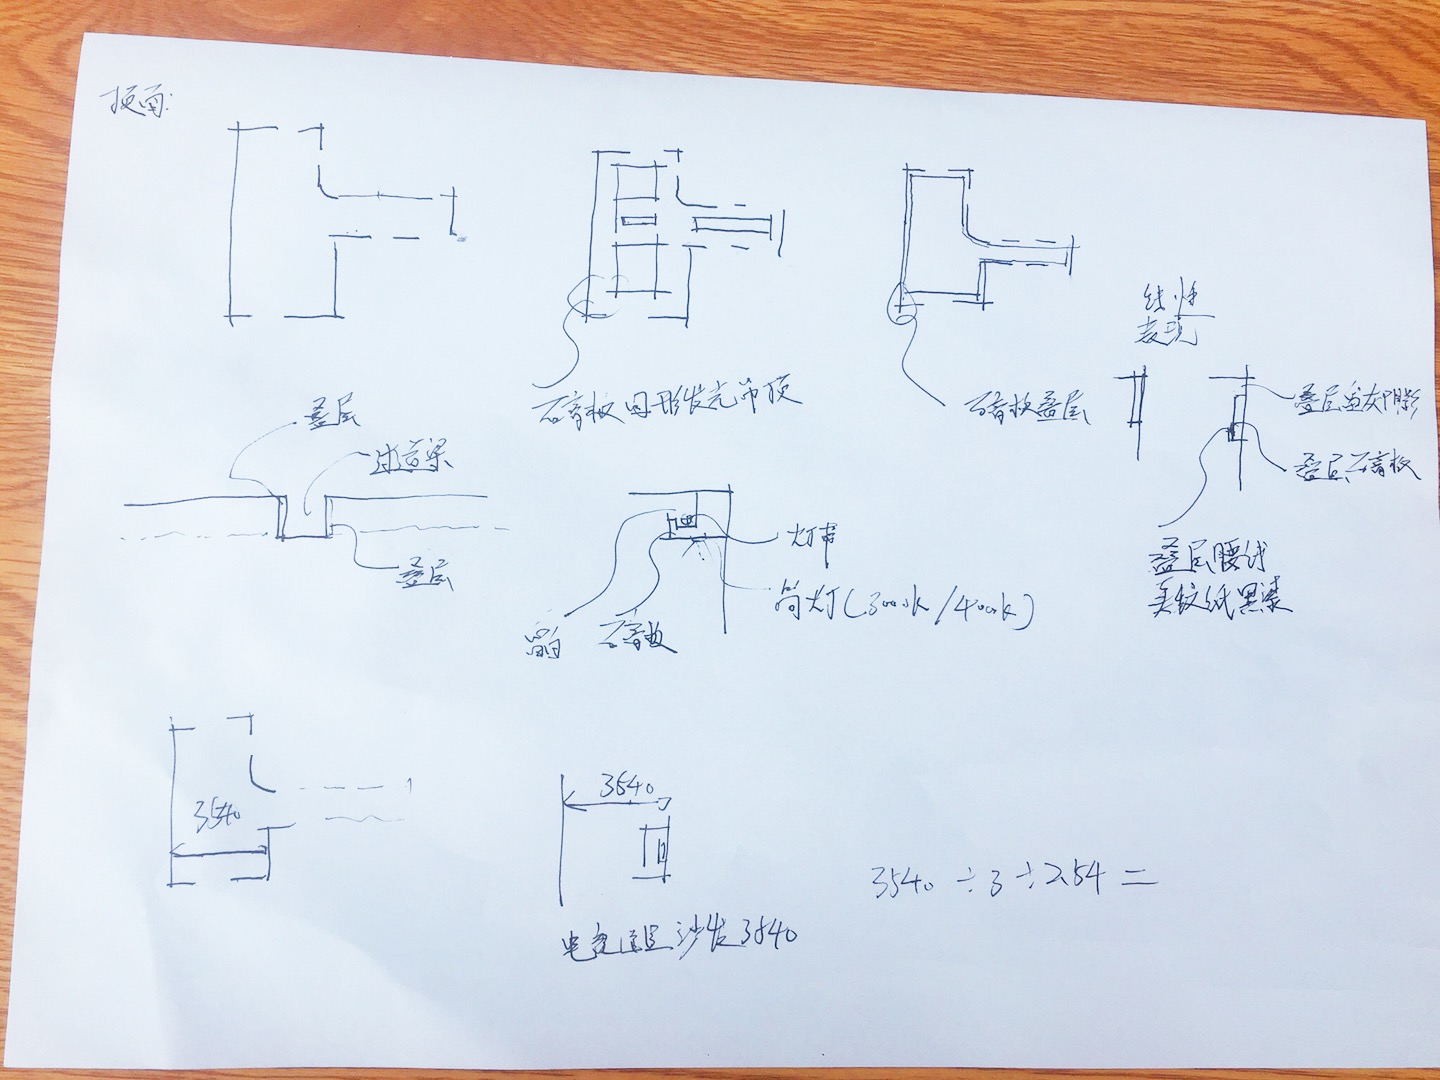 顶面:
线性
表现
石膏板回形发光吊顶
石膏板叠层
叠层
过道梁
叠层
叠层石膏板
灯带
筒灯(3000k/4000k)
留白
石膏板
叠层腰线
美纹纸黑漆
3540
3540
电视距沙发3540
3540÷3÷2.54=